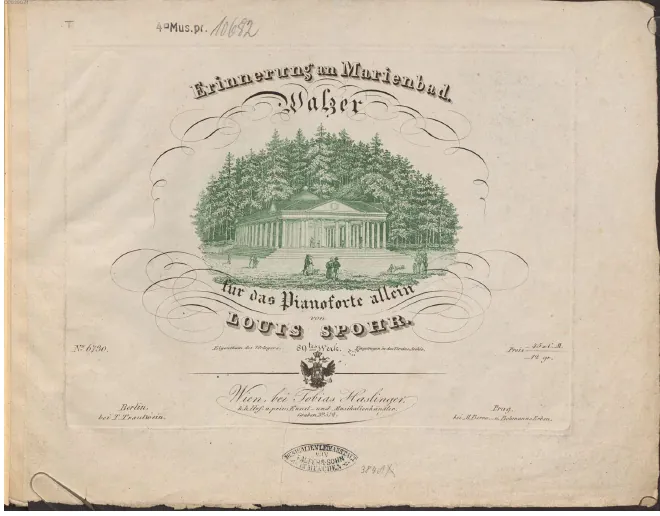 4° Mus.pr. 10682
Erinnerung an Marienbad.
Walzer
für das Pianoforte allein
von
LOUIS SPOHR.
No. 6790.
Eigenthum des Verlegers.
89tes Werk.
Preis
Wien, bei Tobias Haslinger,
k.k. Hof- u. priv. Kunst- und Musikalienhändler.
Berlin,
bei T. Trautwein.
Prag,